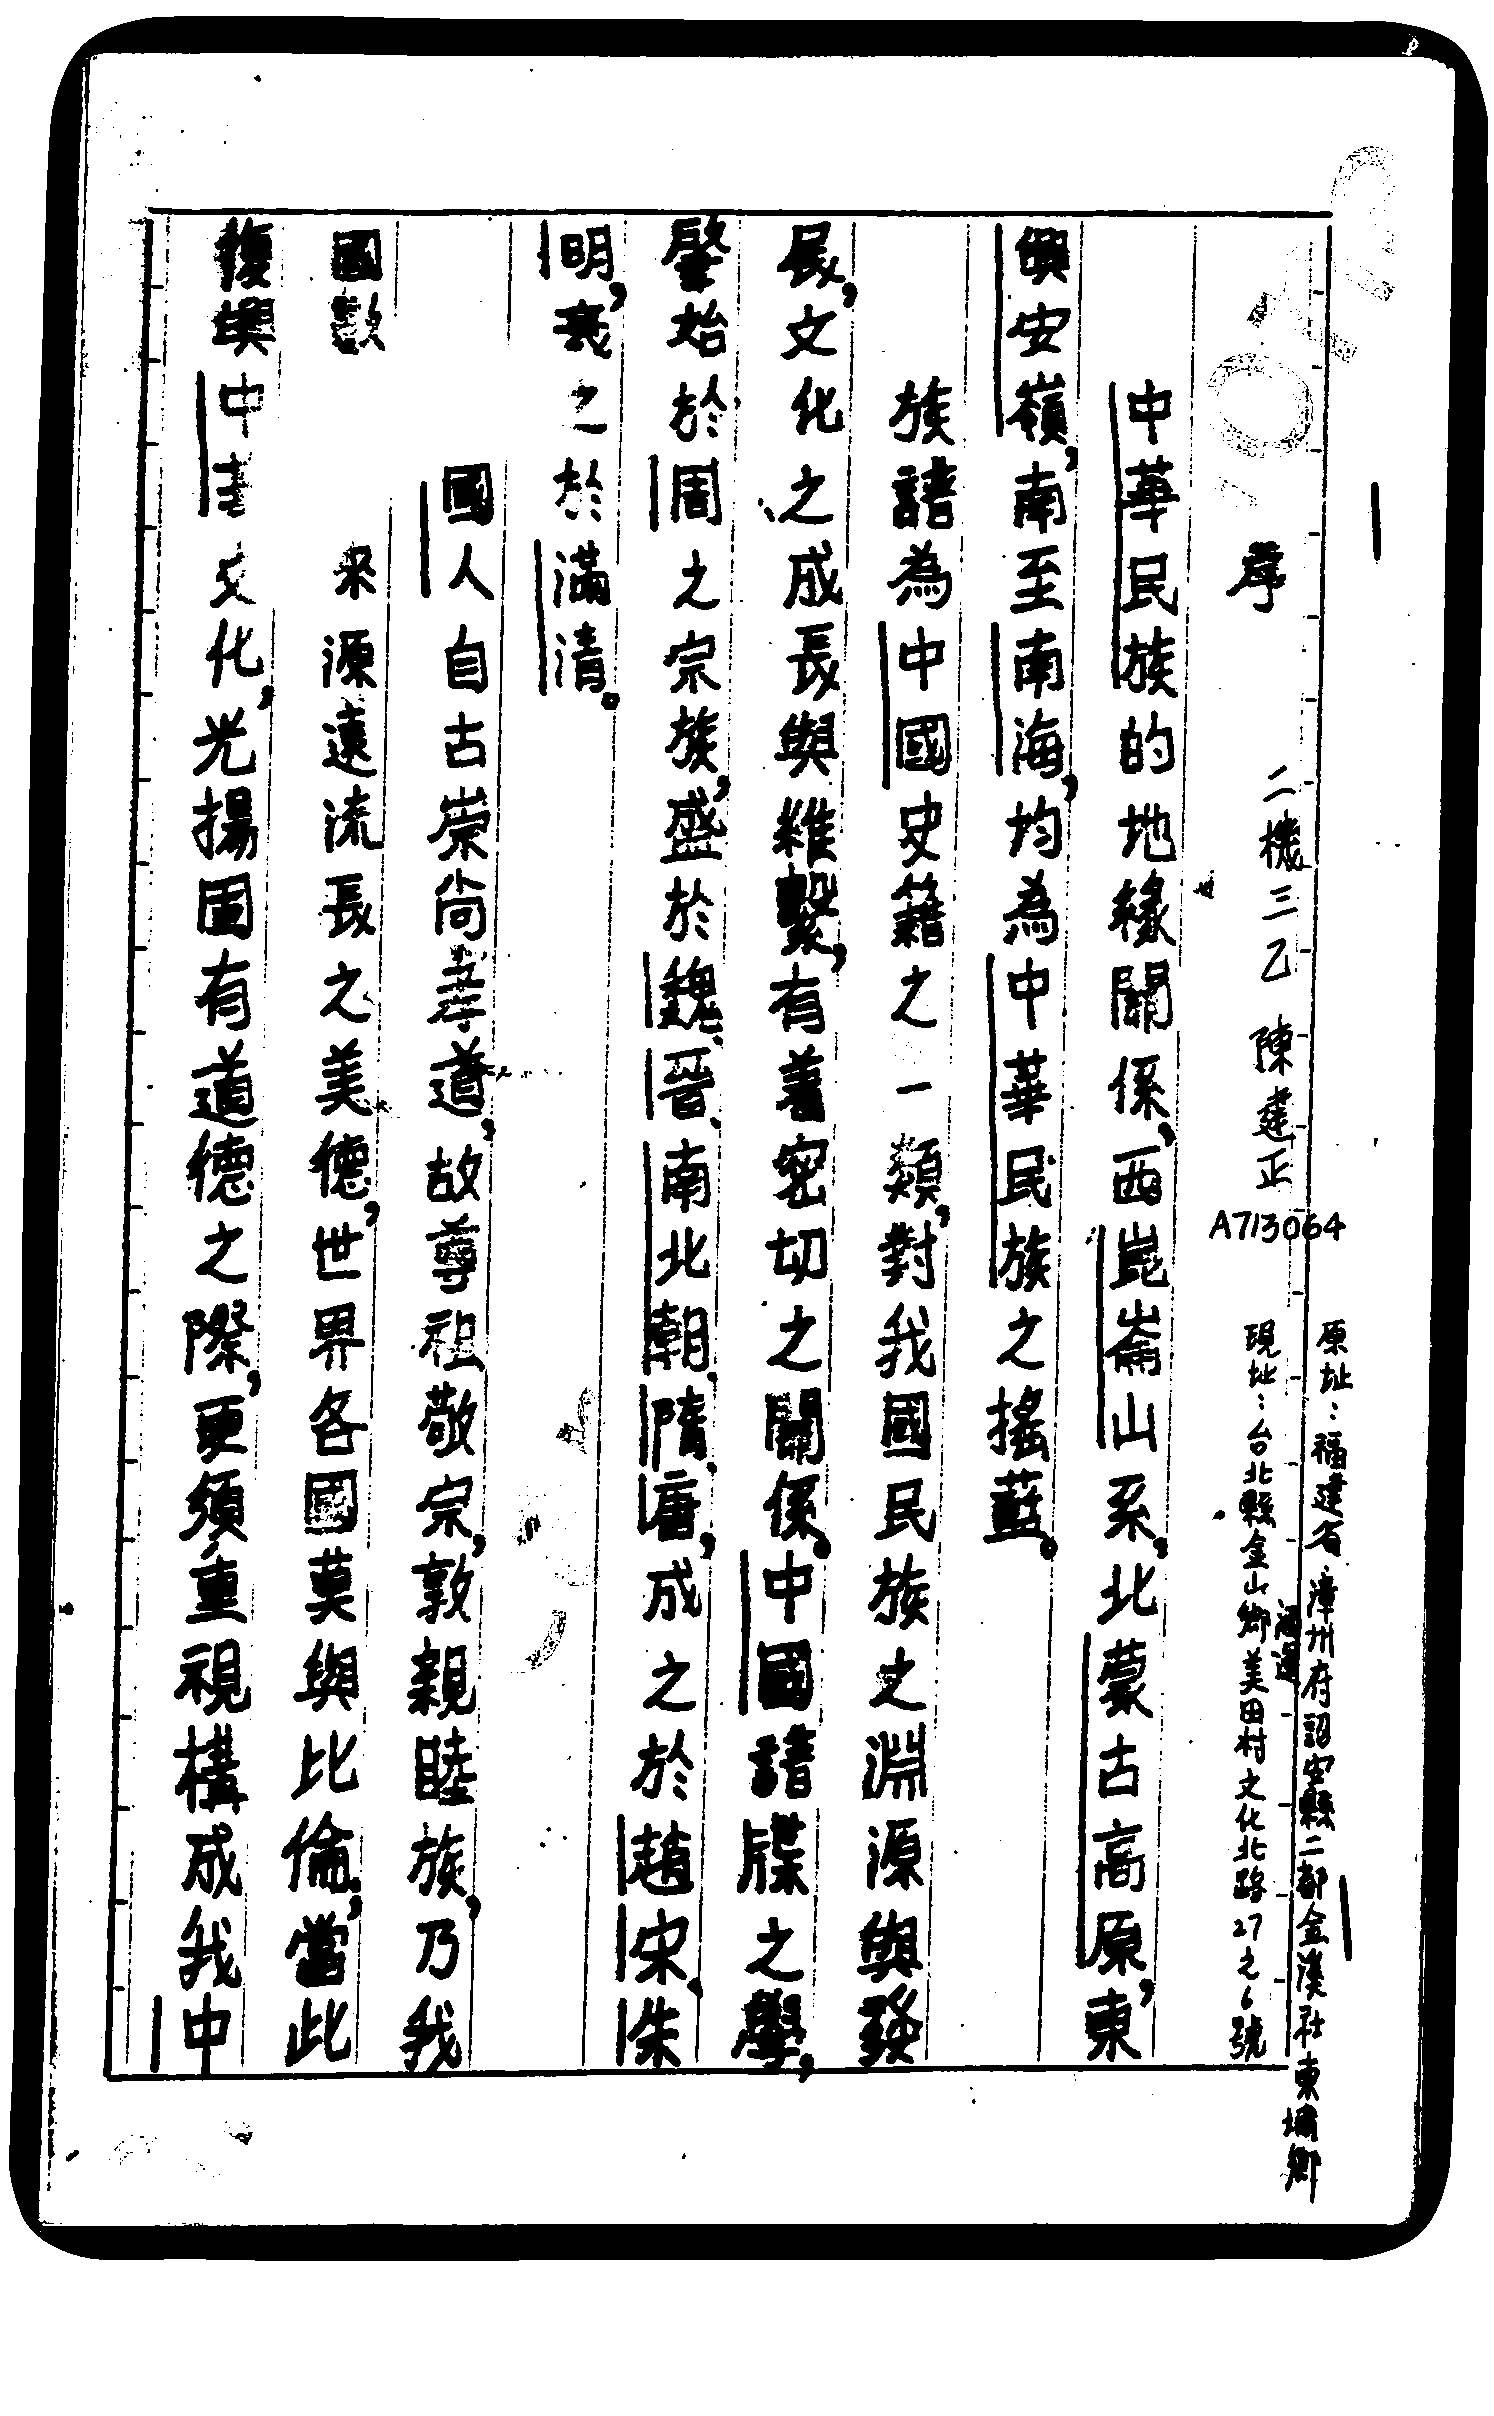 原址：福建省漳州府詔安縣二都金溪社東埔鄉
序 二機三乙 陳建正 A713064
現址：台北縣金山鄉美田村文化北路27之6號
中華民族的地緣關係，西崑崙山系，北蒙古高原，東
興安嶺，南至南海，均為中華民族之搖藍。
族譜為中國史籍之一類，對我國民族之淵源與發
展，文化之成長與維繫，有着密切之關係。中國譜牒之學，
肇始於周之宗族，盛於魏、晉、南北朝、隋、唐，成之於趙宋、朱
明，衰之於滿清。
國人自古崇尚孝道，故尊祖敬宗，敦親睦族，乃我
國數 來源遠流長之美德，世界各國莫與比倫，當此
復興中 文化，光揚固有道德之際，更須重視構成我中